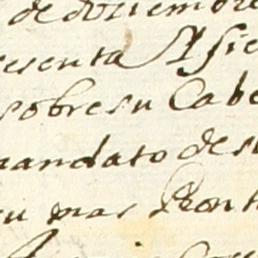 de diziembre
resenta Y sie
sobre su Cabe
mandato de su
su mas Pront